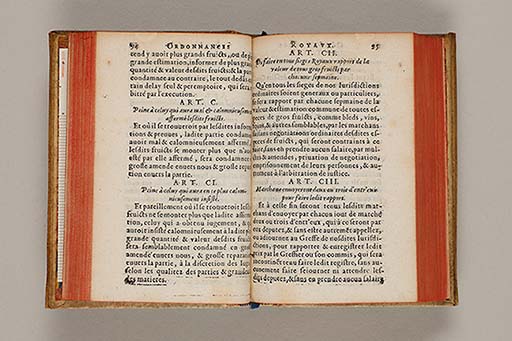 94 ORDONNANCES
tend y auoit plus grands fruicts, ou de p
grande estimation, informer de plus gran
quantité & valeur desdits fruicts & la par
condamnee au contraire, le tout dedans
tain delay seul & peremptoire, qui sera
bitré par l'execution.
ART. C.
Peine à celuy qui aura mal & calomnieusement
affermé lesdits fruicts.
Et où il se trouueroit par lesdites infor
tions & preuues, ladite partie condamn
auoir mal & calomnieusement affermé,
lesdits fruicts se monter plus que n'auo
esté par elle affermé, sera condamnee
grosse amende enuers nous & grosse repar
tion enuers la partie.
ART. CI.
Peine à celuy qui aura en ce plus calom-
nieusement insisté.
Et pareillement où il se trouueroit lesdits
fruicts ne se monter plus que ladite affirm
tion, celuy qui a obtenu jugement, & q
auroit insisté calomnieusement à ladite plus
grande quantité & valeur desdits fruicts
sera semblablement condamné en grosse
amende enuers nous, & grosse reparation
enuers la partie, à la discretion des Iuges
selon les qualitez des parties & grandeur
des matieres.
ROYAVX. 95
ART. CII.
De faire en tous sieges Royaux rapport de la
valeur de tous gros fruicts par
chacune sepmaine.
Qu'en tous les sieges de nos Iurisdictions
ordinaires soient generaux ou particuliers,
se fera rapport par chacune sepmaine de la
valeur & estimation commune de toutes es-
peces de gros fruicts, comme bleds, vins,
foins, & autres semblables, par les marchands
faisans negotiations ordinaires desdites es-
peces de fruicts, qui seront contraints à ce
faire, sans en prendre aucun salaire, par mul-
ctes & amendes, priuation de negotiation,
emprisonnement de leurs personnes, & au-
trement à l'arbitration de iustice.
ART. CIII.
Marchans enuoyeront deux ou trois d'entr'eux
pour faire ledit rapport.
Et à ceste fin seront tenus lesdits mar-
chands d'enuoyer par chacun iour de marché
deux ou trois d'entr'eux, qui à ce seront par
eux deputez, & sans estre autrement appellez,
ou adiournez au Greffe de nosdites Iurisdi-
ctions, pour rapporter & enregistrer ledit
prix par le Greffier ou son commis, qui sera
incontinent tenu faire ledit registre, sans au-
cunement faire seiourner ni attendre les-
dits deputez, & sans en prendre aucun salaire.